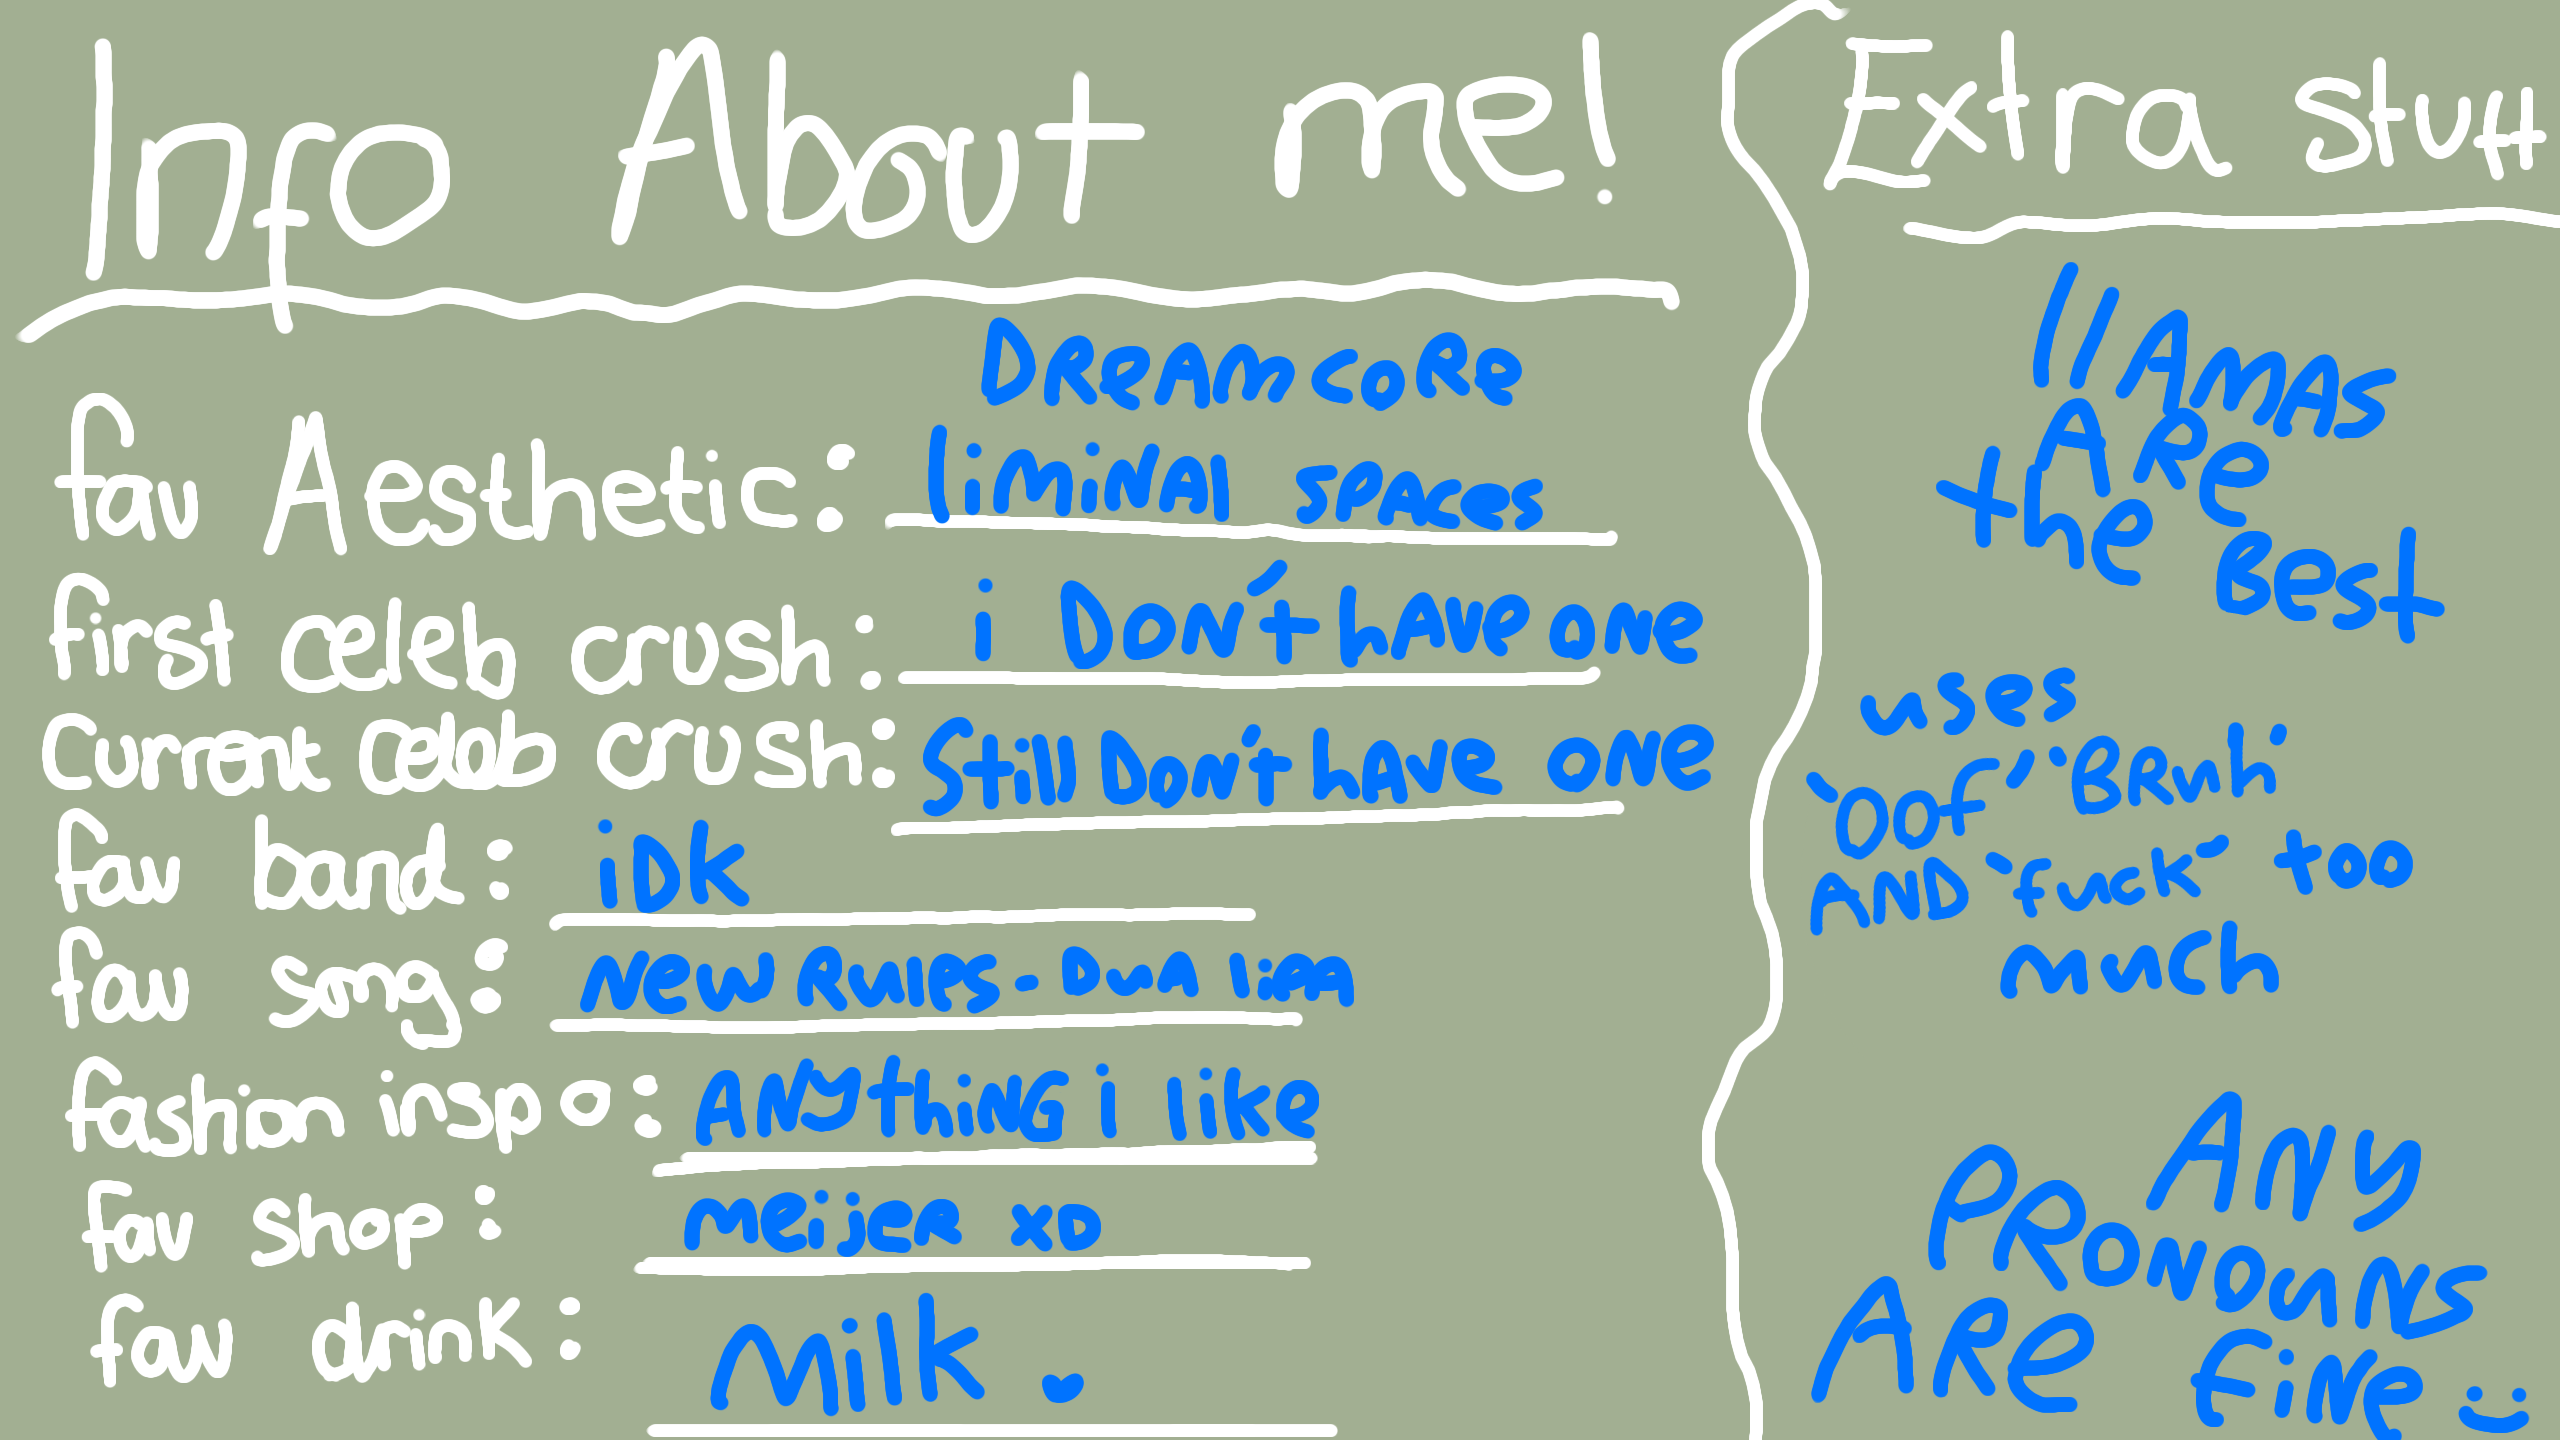 Info About me!
DReAmcoRe
fav Aesthetic: liminAl spAces
first celeb crush: i Don't hAve one
Current Celeb crush: Still Don't hAve one
fav band: iDK
fav song: New Rules - DuA lipA
fashion inspo: ANythiNG i like
fav shop: meijeR XD
fav drink: Milk
Extra stuff
llAmAs
ARe
the Best
uses
'OOf' 'BRuh'
AND 'fuck' too
much
Any
PRONOuNS
ARe fiNe :)